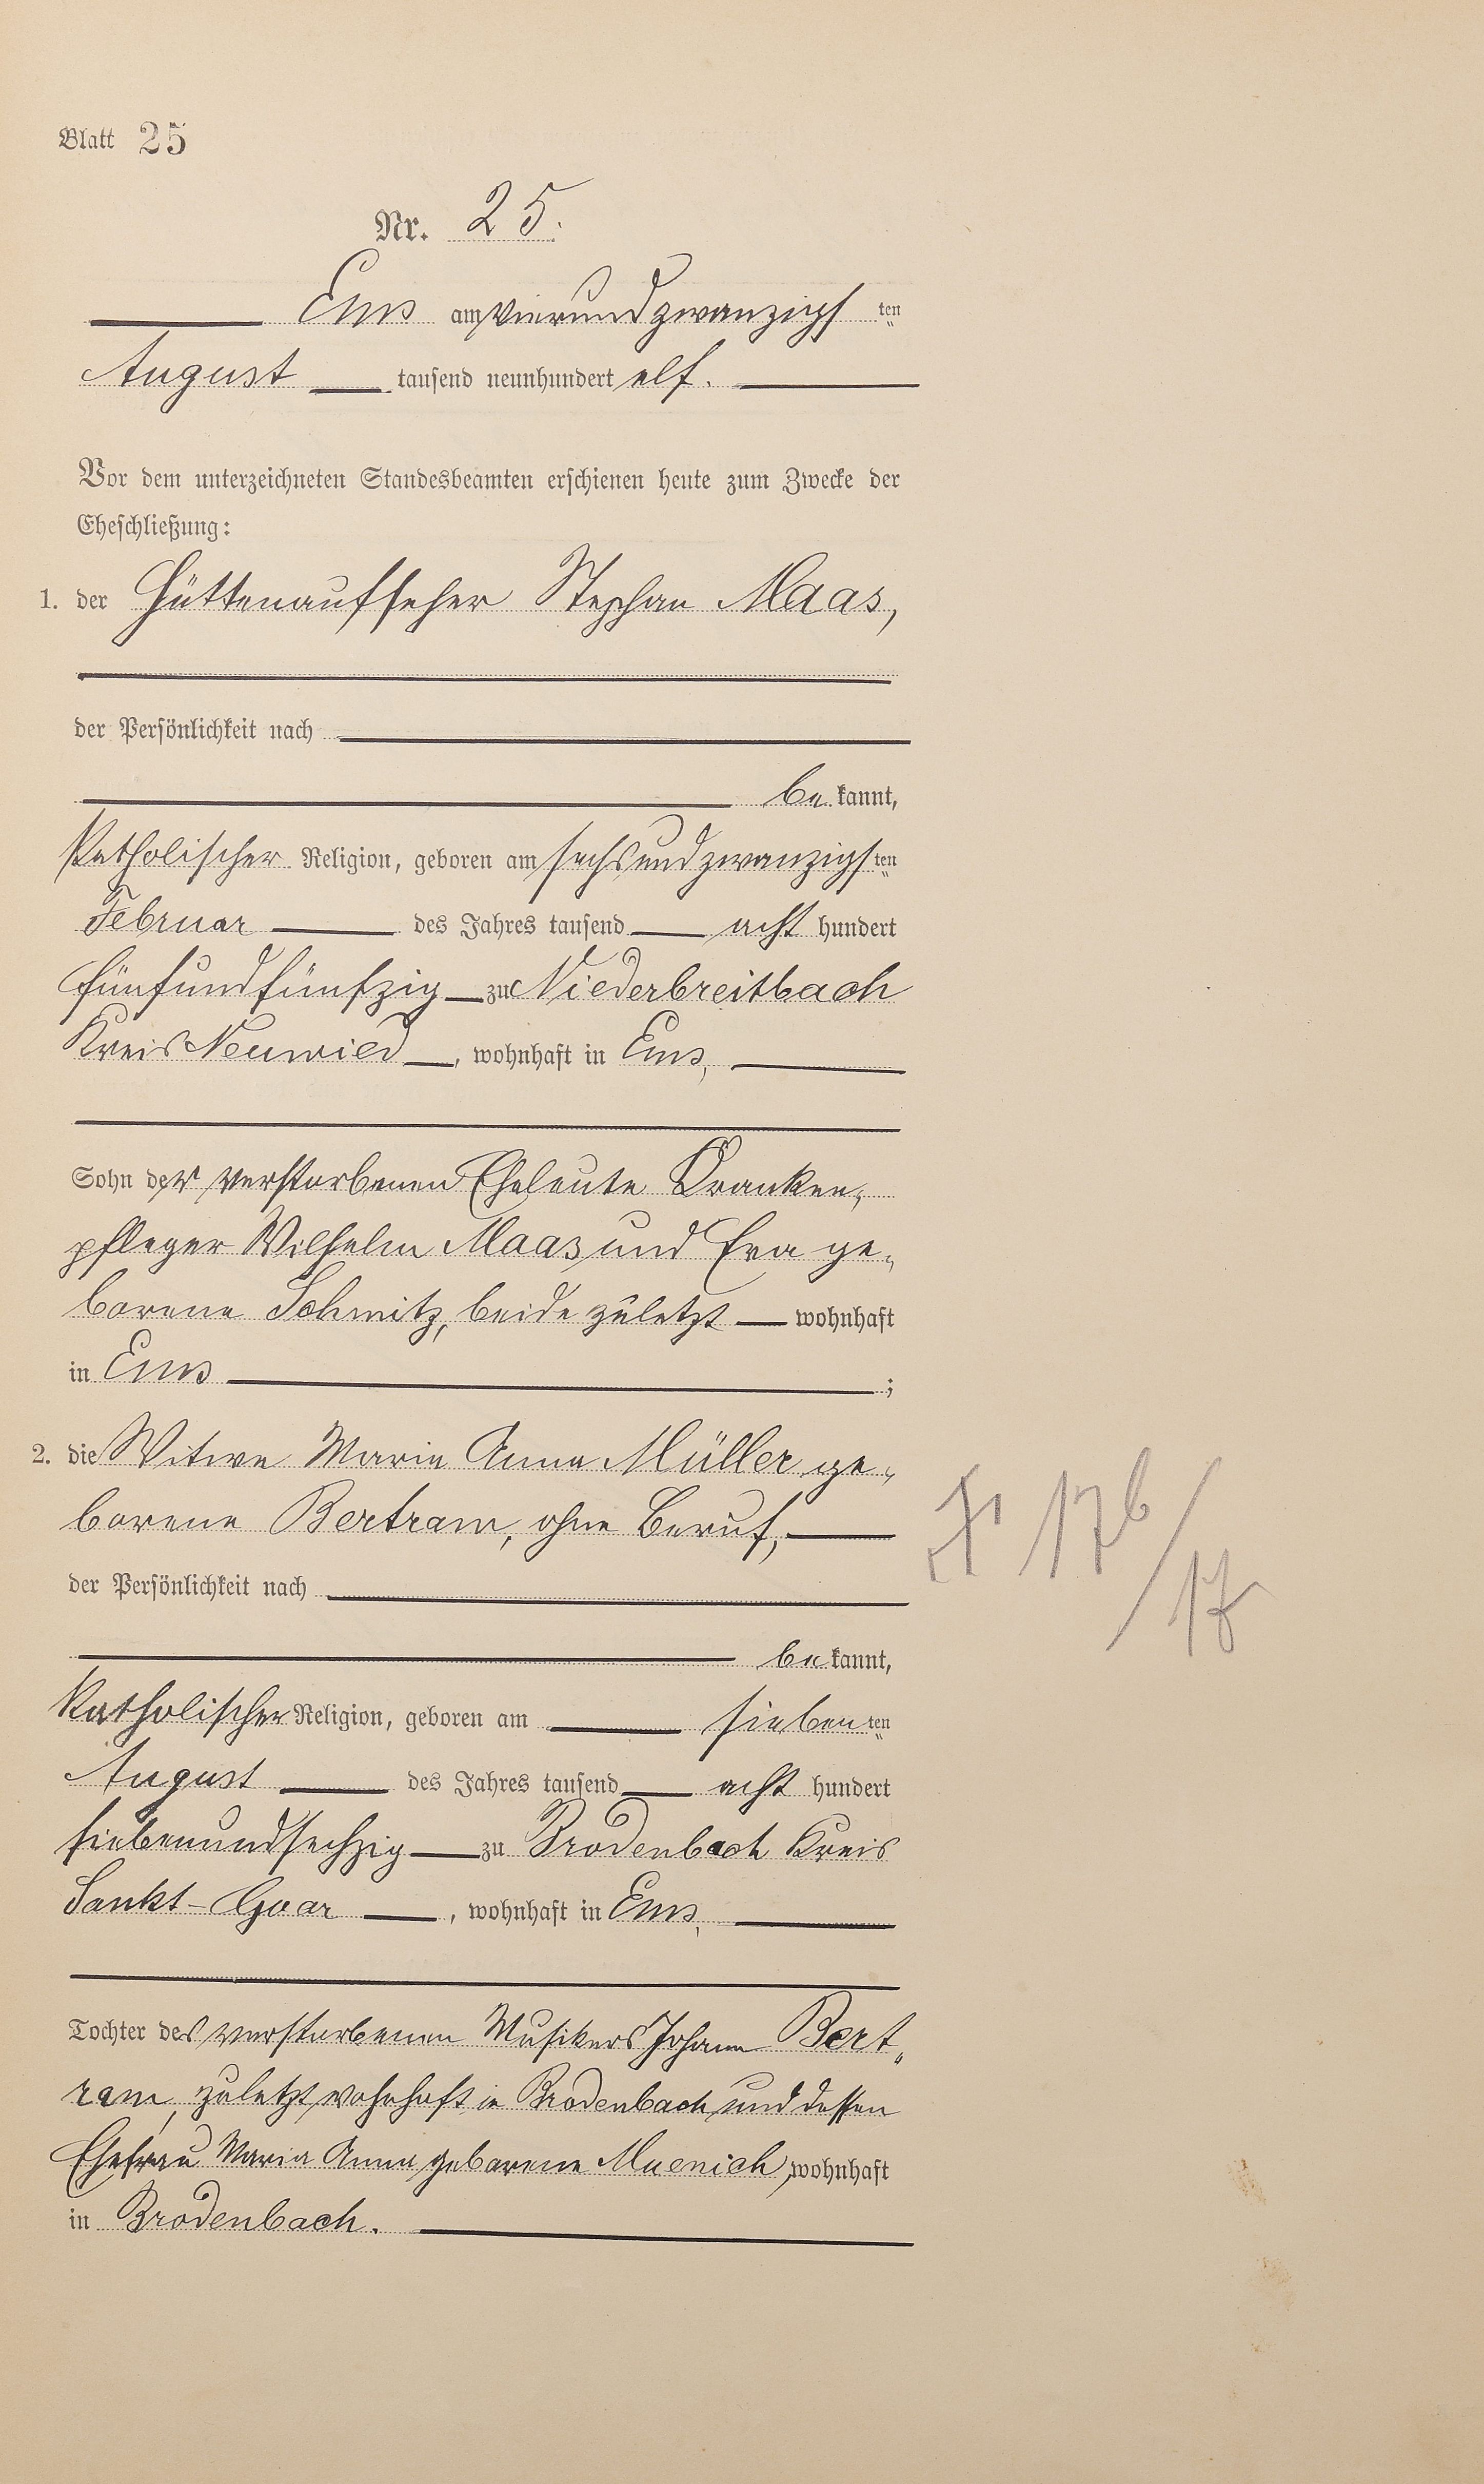 Blatt 25
Nr. 25.
Ems am vierundzwanzigsten
August tausend neunhundert elf.
Vor dem unterzeichneten Standesbeamten erschienen heute zum Zwecke der
Eheschließung:
1. der Hüttenaufseher Stephan Maas,
der Persönlichkeit nach
be kannt,
katholischer Religion, geboren am sechsundzwanzigsten
Februar des Jahres tausend acht hundert
fünfundfünfzig zu Niederbreitbach
Kreis Neuwied, wohnhaft in Ems,
Sohn der verstorbenen Eheleute Kranken-
pfleger Wilhelm Maas und Eva ge-
borene Schmitz, beide zuletzt wohnhaft
in Ems ;
2. die Witwe Maria Anna Müller ge-
borene Bertram, ohne Beruf,
der Persönlichkeit nach
be kannt,
katholischer Religion, geboren am siebenten
August des Jahres tausend acht hundert
siebenundsechzig zu Brodenbach Kreis
Sankt-Goar, wohnhaft in Ems,
Tochter des verstorbenen Musikers Johann Bert-
ram, zuletzt wohnhaft in Brodenbach und dessen
Ehefrau Maria Anna geborene Muenich, wohnhaft
in Brodenbach.
17b/17